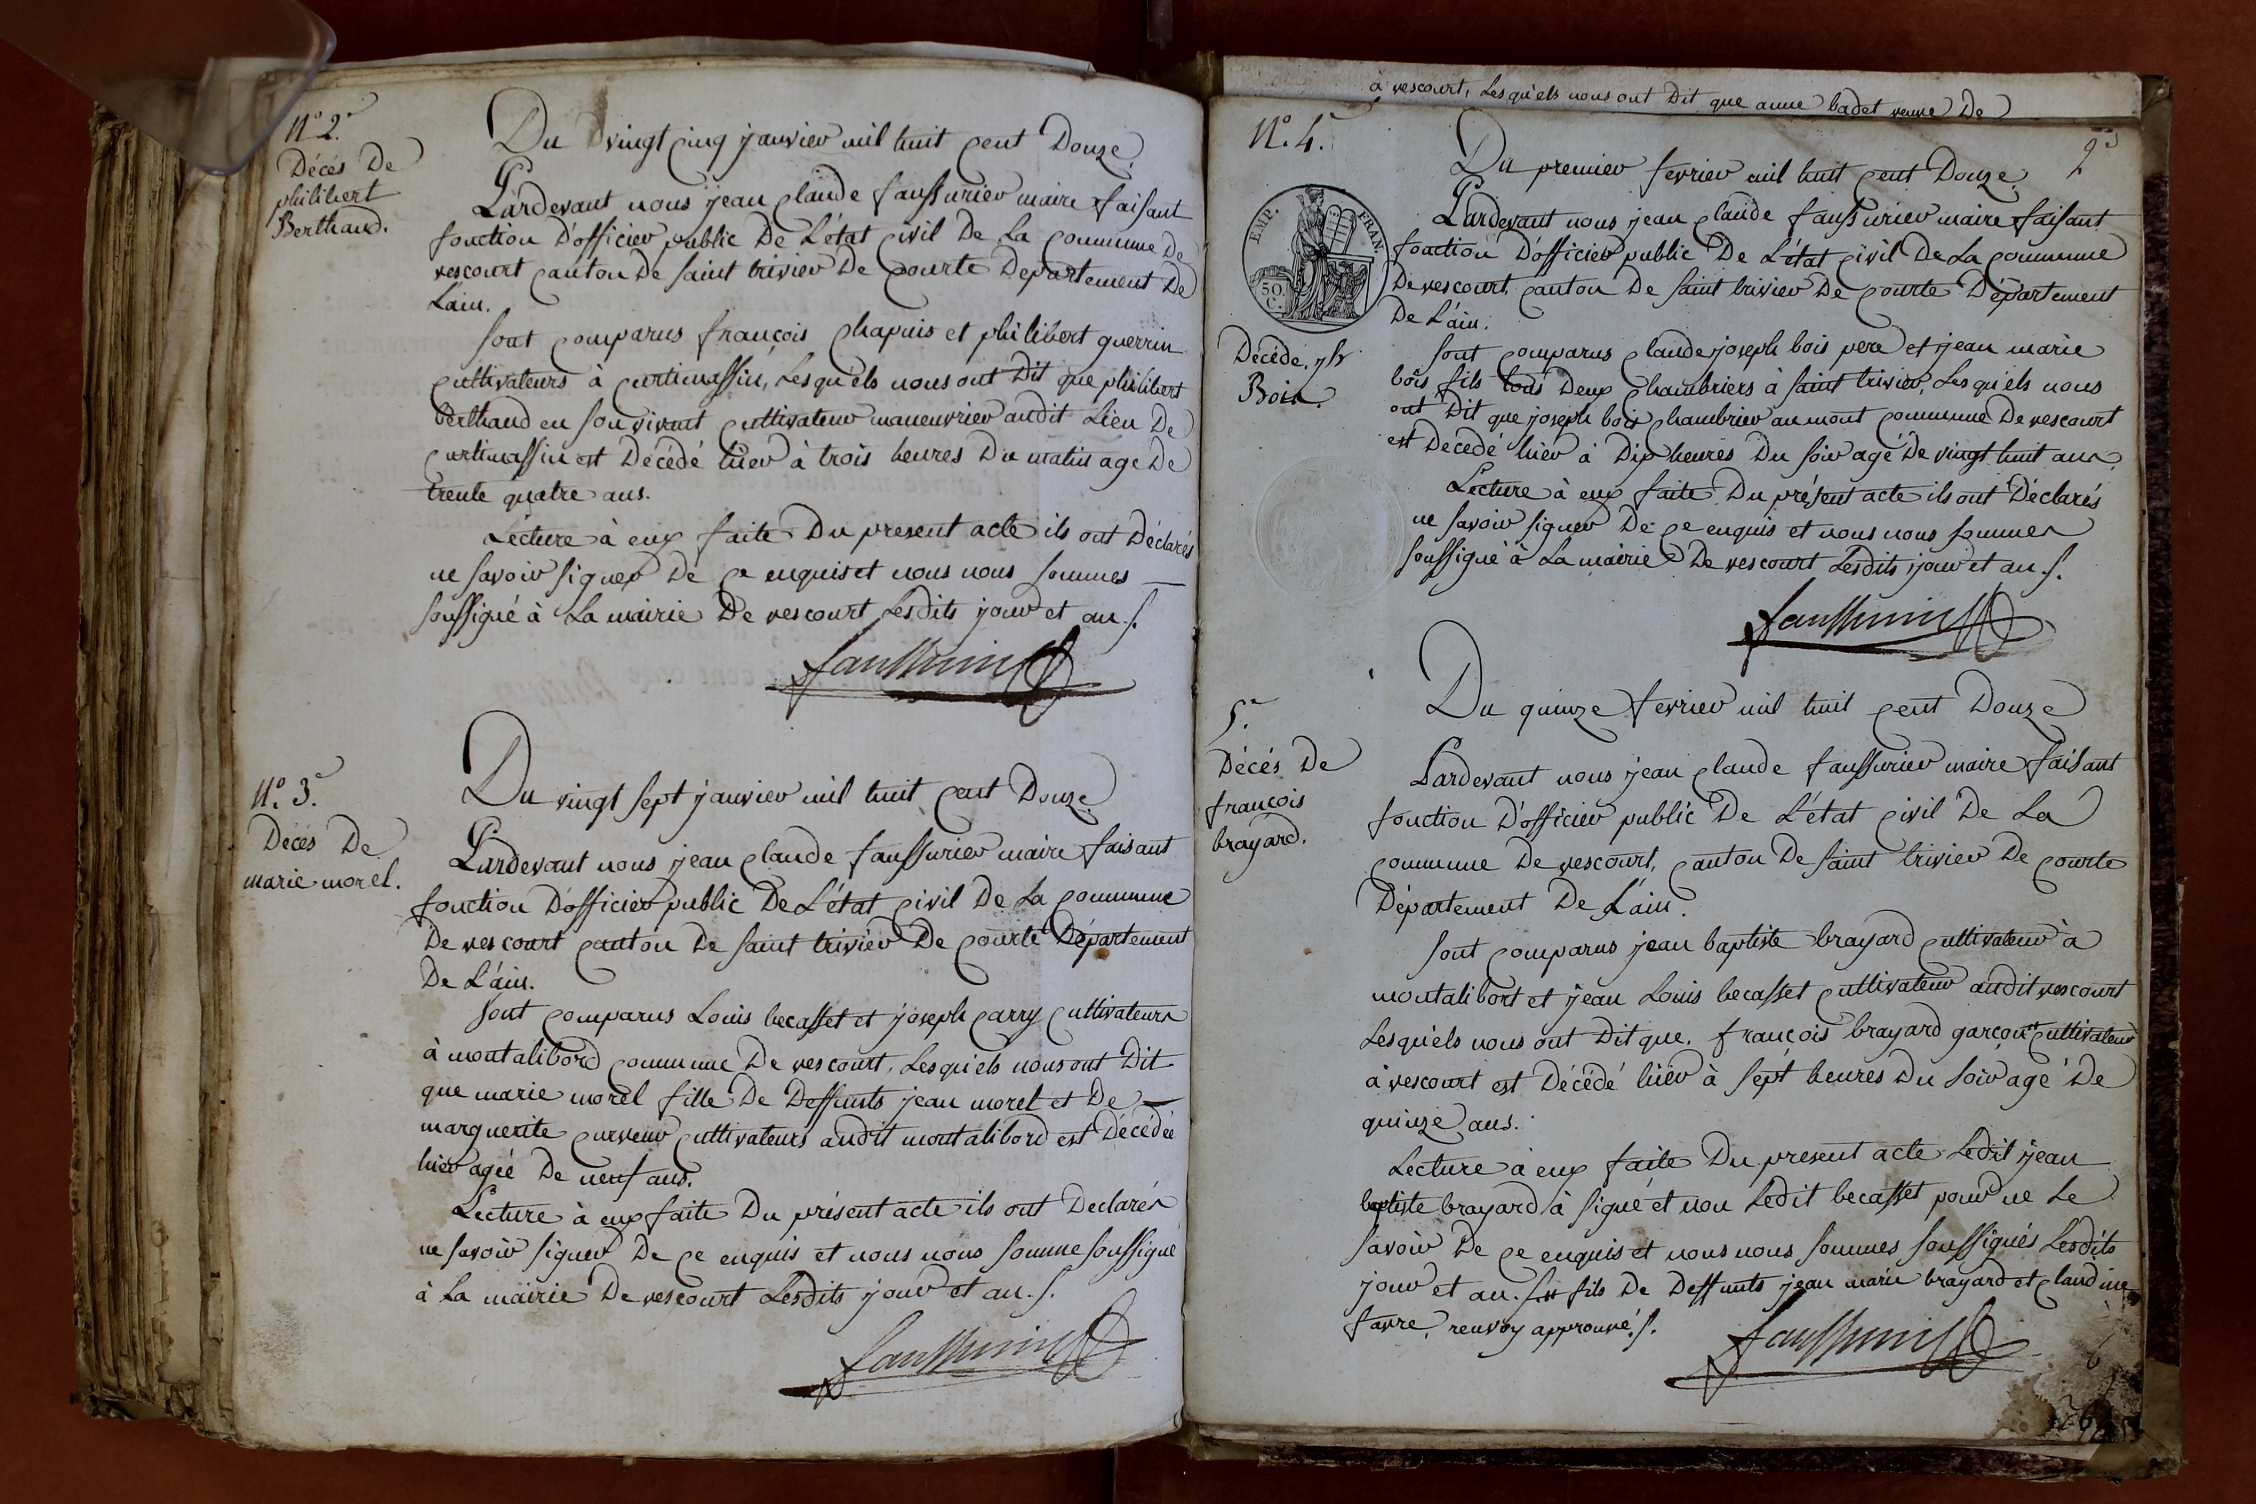 N.° 2.e
Décés De
philibert
Berthaud.
Du vingt cinq janvier mil huit cent Douze.
Pardevant nous jean claude faussurier maire faisant
fonction D'officier public De L'état civil De La commune De
vescourt canton De saint trivier De courte Departement De
L'ain.
sont comparus françois chapuis et philibert guerrin
cultivateurs à curtimassin, Lesquéls nous ont Dit que philibert
berthaud en son vivant cultivateur maneuvrier audit Lieu De
curtimassin est Décédé hiér à trois heures Du matin age De
trente quatre ans.
Lécture à eux faite Du present acte ils ont Déclarés
ne savoir signer De ce enquis et nous nous sommes
soussigné à La mairie De vescourt Lesdits jour et an.
faussurier
N.° 3.e
Décés De
marie morel.
Du vingt sept janvier mil huit cent Douze.
Pardevant nous jean claude faussurier maire faisant
fonction D'officier public De L'état civil De La commune
De vescourt canton De saint trivier De courte Département
De L'ain.
sont comparus Louis becasset et joseph carry cultivateurs
à montalibord commune De vescourt, Lesquiéls nous ont Dit
que marie morel fille De Deffunts jean morel et De
marguerite curveur cultivateurs audit montalibord est Décédée
hier agée De neuf ans.
Lecture à eux faite Du présent acte ils ont Declarés
ne savoir signer De ce enquis et nous nous somme soussigné
à La mairie De vescourt Lesdits jour et an.
faussurier
à vescourt, Lesquéls nous ont Dit que anne badet veuve De
N.° 4.e
2.e
EMP. FRAN.
50 C.
Décédé jph
Bois.
Du premier fevrier mil huit cent Douze.
Pardevant nous jean claude faussurier maire faisant
fonction D'officier public De L'état civil De La commune
De vescourt canton De saint trivier De courte Département
De L'ain.
sont comparus claude joseph bois pere et jean marie
bois fils tous Deux chambriers à saint trivier, Lesquéls nous
ont Dit que joseph bois chambrier au mont commune De vescourt
est Decédé hiér à Dix heures Du soir agé De vingt huit ans.
Lecture à eux faite Du présent acte ils ont Déclarés
ne savoir signer De ce enquis et nous nous sommes
soussigné à La mairie De vescourt Lesdits jour et an.
faussurier
5.e
Décés De
françois
brayard.
Du quinze fevrier mil huit cent Douze
Pardevant nous jean claude faussurier maire faisant
fonction D'officier public De L'état civil De La
commune De vescourt, canton De saint trivier De courte
Département De L'ain.
sont comparus jean baptiste brayard cultivateur à
montalibort et jean Louis becasset cultivateur audit vescourt
Lesquéls nous ont Dit que, françois brayard garçon cultivateur
à vescourt est Décédé hiér à sept heures Du soir agé De
quinze ans.
Lecture à eux faite Du present acte Ledit jean
baptiste brayard à signé et non Ledit becasset pour ne Le
savoir De ce enquis et nous nous sommes soussignés Lesdits
jour et an. fils De Deffunts jean marie brayard et claudine
favre, renvoy approuvé.
faussurier